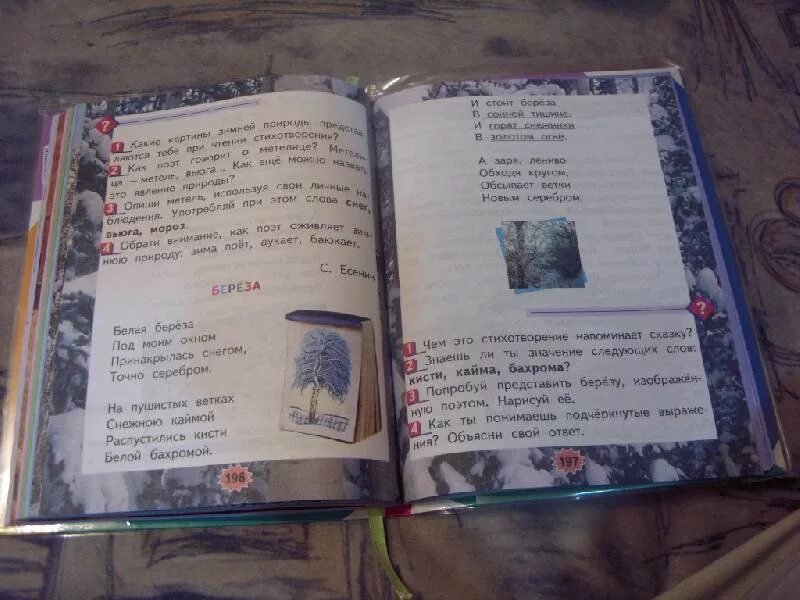 ?
1 Какие картины зимней природы представ-
ляются тебе при чтении стихотворения?
2 Как поэт говорит о метелице? Метели-
ца – метель, вьюга... Как ещё можно назвать
это явление природы?
3 Опиши метель, используя свои личные на-
блюдения. Употребляй при этом слова снег,
вьюга, мороз.
4 Обрати внимание, как поэт оживляет зим-
нюю природу: зима поёт, аукает, баюкает.
С. Есенин
БЕРЁЗА
Белая берёза
Под моим окном
Принакрылась снегом,
Точно серебром.
На пушистых ветках
Снежною каймой
Распустились кисти
Белой бахромой.
196
И стоит берёза
В сонной тишине,
И горят снежинки
В золотом огне.
А заря, лениво
Обходя кругом,
Обсыпает ветки
Новым серебром.
?
1 Чем это стихотворение напоминает сказку?
2 Знаешь ли ты значение следующих слов:
кисти, кайма, бахрома?
3 Попробуй представить берёзу, изображён-
ную поэтом. Нарисуй её.
4 Как ты понимаешь подчёркнутые выраже-
ния? Объясни свой ответ.
197